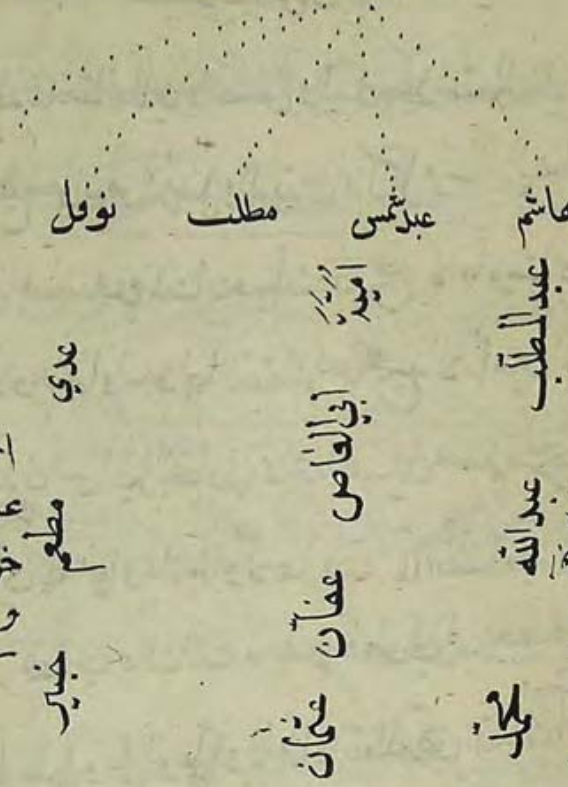 هاشم عبدشمس مطلب نوفل
عبدالمطلّب
عبدالله
محمّد
اميّة
ابي العاص
عفّان
عثمان
عدي
مطعم
جبير